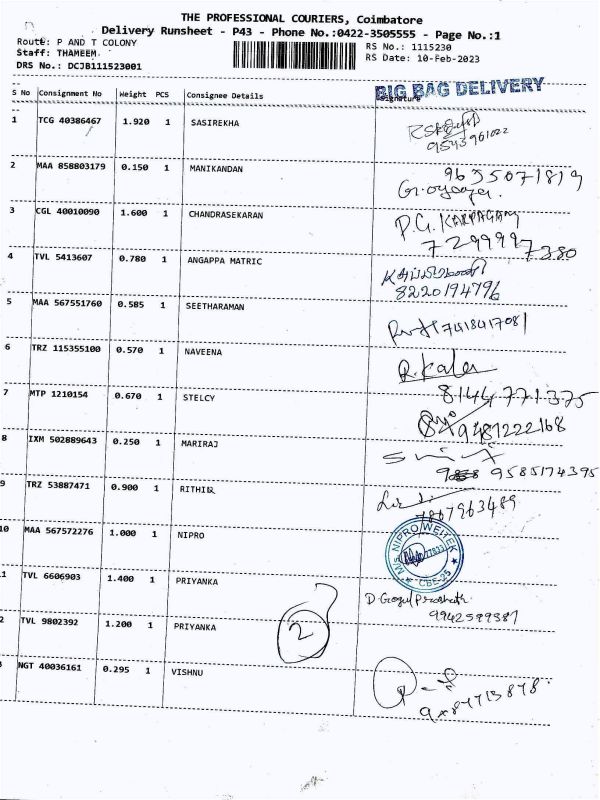 THE PROFESSIONAL COURIERS, Coimbatore
Delivery Runsheet - P43 - Phone No.:0422-3505555 - Page No.:1
Route: P AND T COLONY
RS No.: 1115230
Staff: THAMEEM
RS Date: 10-Feb-2023
DRS No.: DCJB111523001
BIG BAG DELIVERY
S No Consignment No Weight PCS Consignee Details Signature
1 TCG 40386467 1.920 1 SASIREKHA
9543961022
2 MAA 858803179 0.150 1 MANIKANDAN
9635071819
3 CGL 40010090 1.600 1 CHANDRASEKARAN
P.G. KARPAGAM
7299997380
4 TVL 5413607 0.780 1 ANGAPPA MATRIC
8220194796
5 MAA 567551760 0.585 1 SEETHARAMAN
7418417081
6 TRZ 115355100 0.570 1 NAVEENA
R. Kala
8144771375
7 MTP 1210154 0.670 1 STELCY
9487222168
8 IXM 502889643 0.250 1 MARIRAJ
9585174395
9 TRZ 53887471 0.900 1 RITHIK
7867963489
10 MAA 567572276 1.000 1 NIPRO
M/S. NIPRO/WEITEK
CBE-25
1 TVL 6606903 1.400 1 PRIYANKA
9942599387
2 TVL 9802392 1.200 1 PRIYANKA
2
NGT 40036161 0.295 1 VISHNU